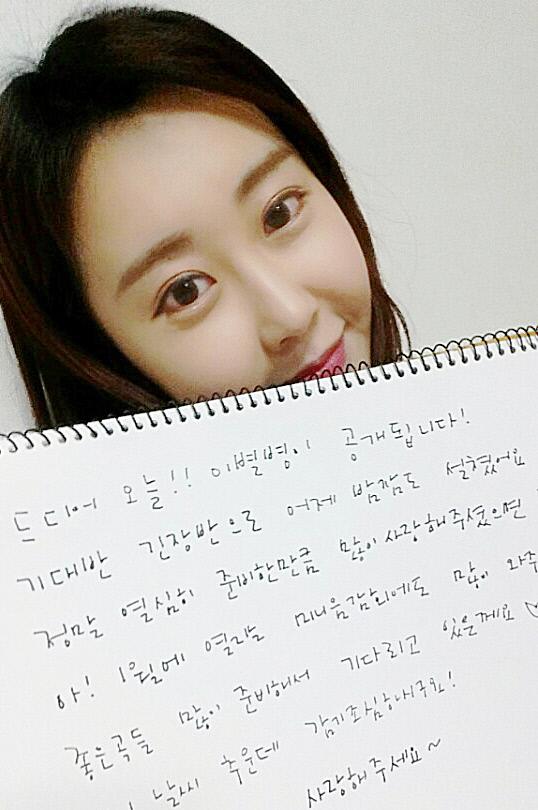 드디어 오늘!! 이별병이 공개됩니다!
기대반 긴장반으로 어제 밤잠도 설쳤어요
정말 열심히 준비한만큼 많이 사랑해주셨으면
아! 1월에 열리는 미니음감회에도 많이 와주
좋은곡들 많이 준비해서 기다리고 있을게요♡
날씨 추운데 감기조심하시구요!
사랑해주세요~